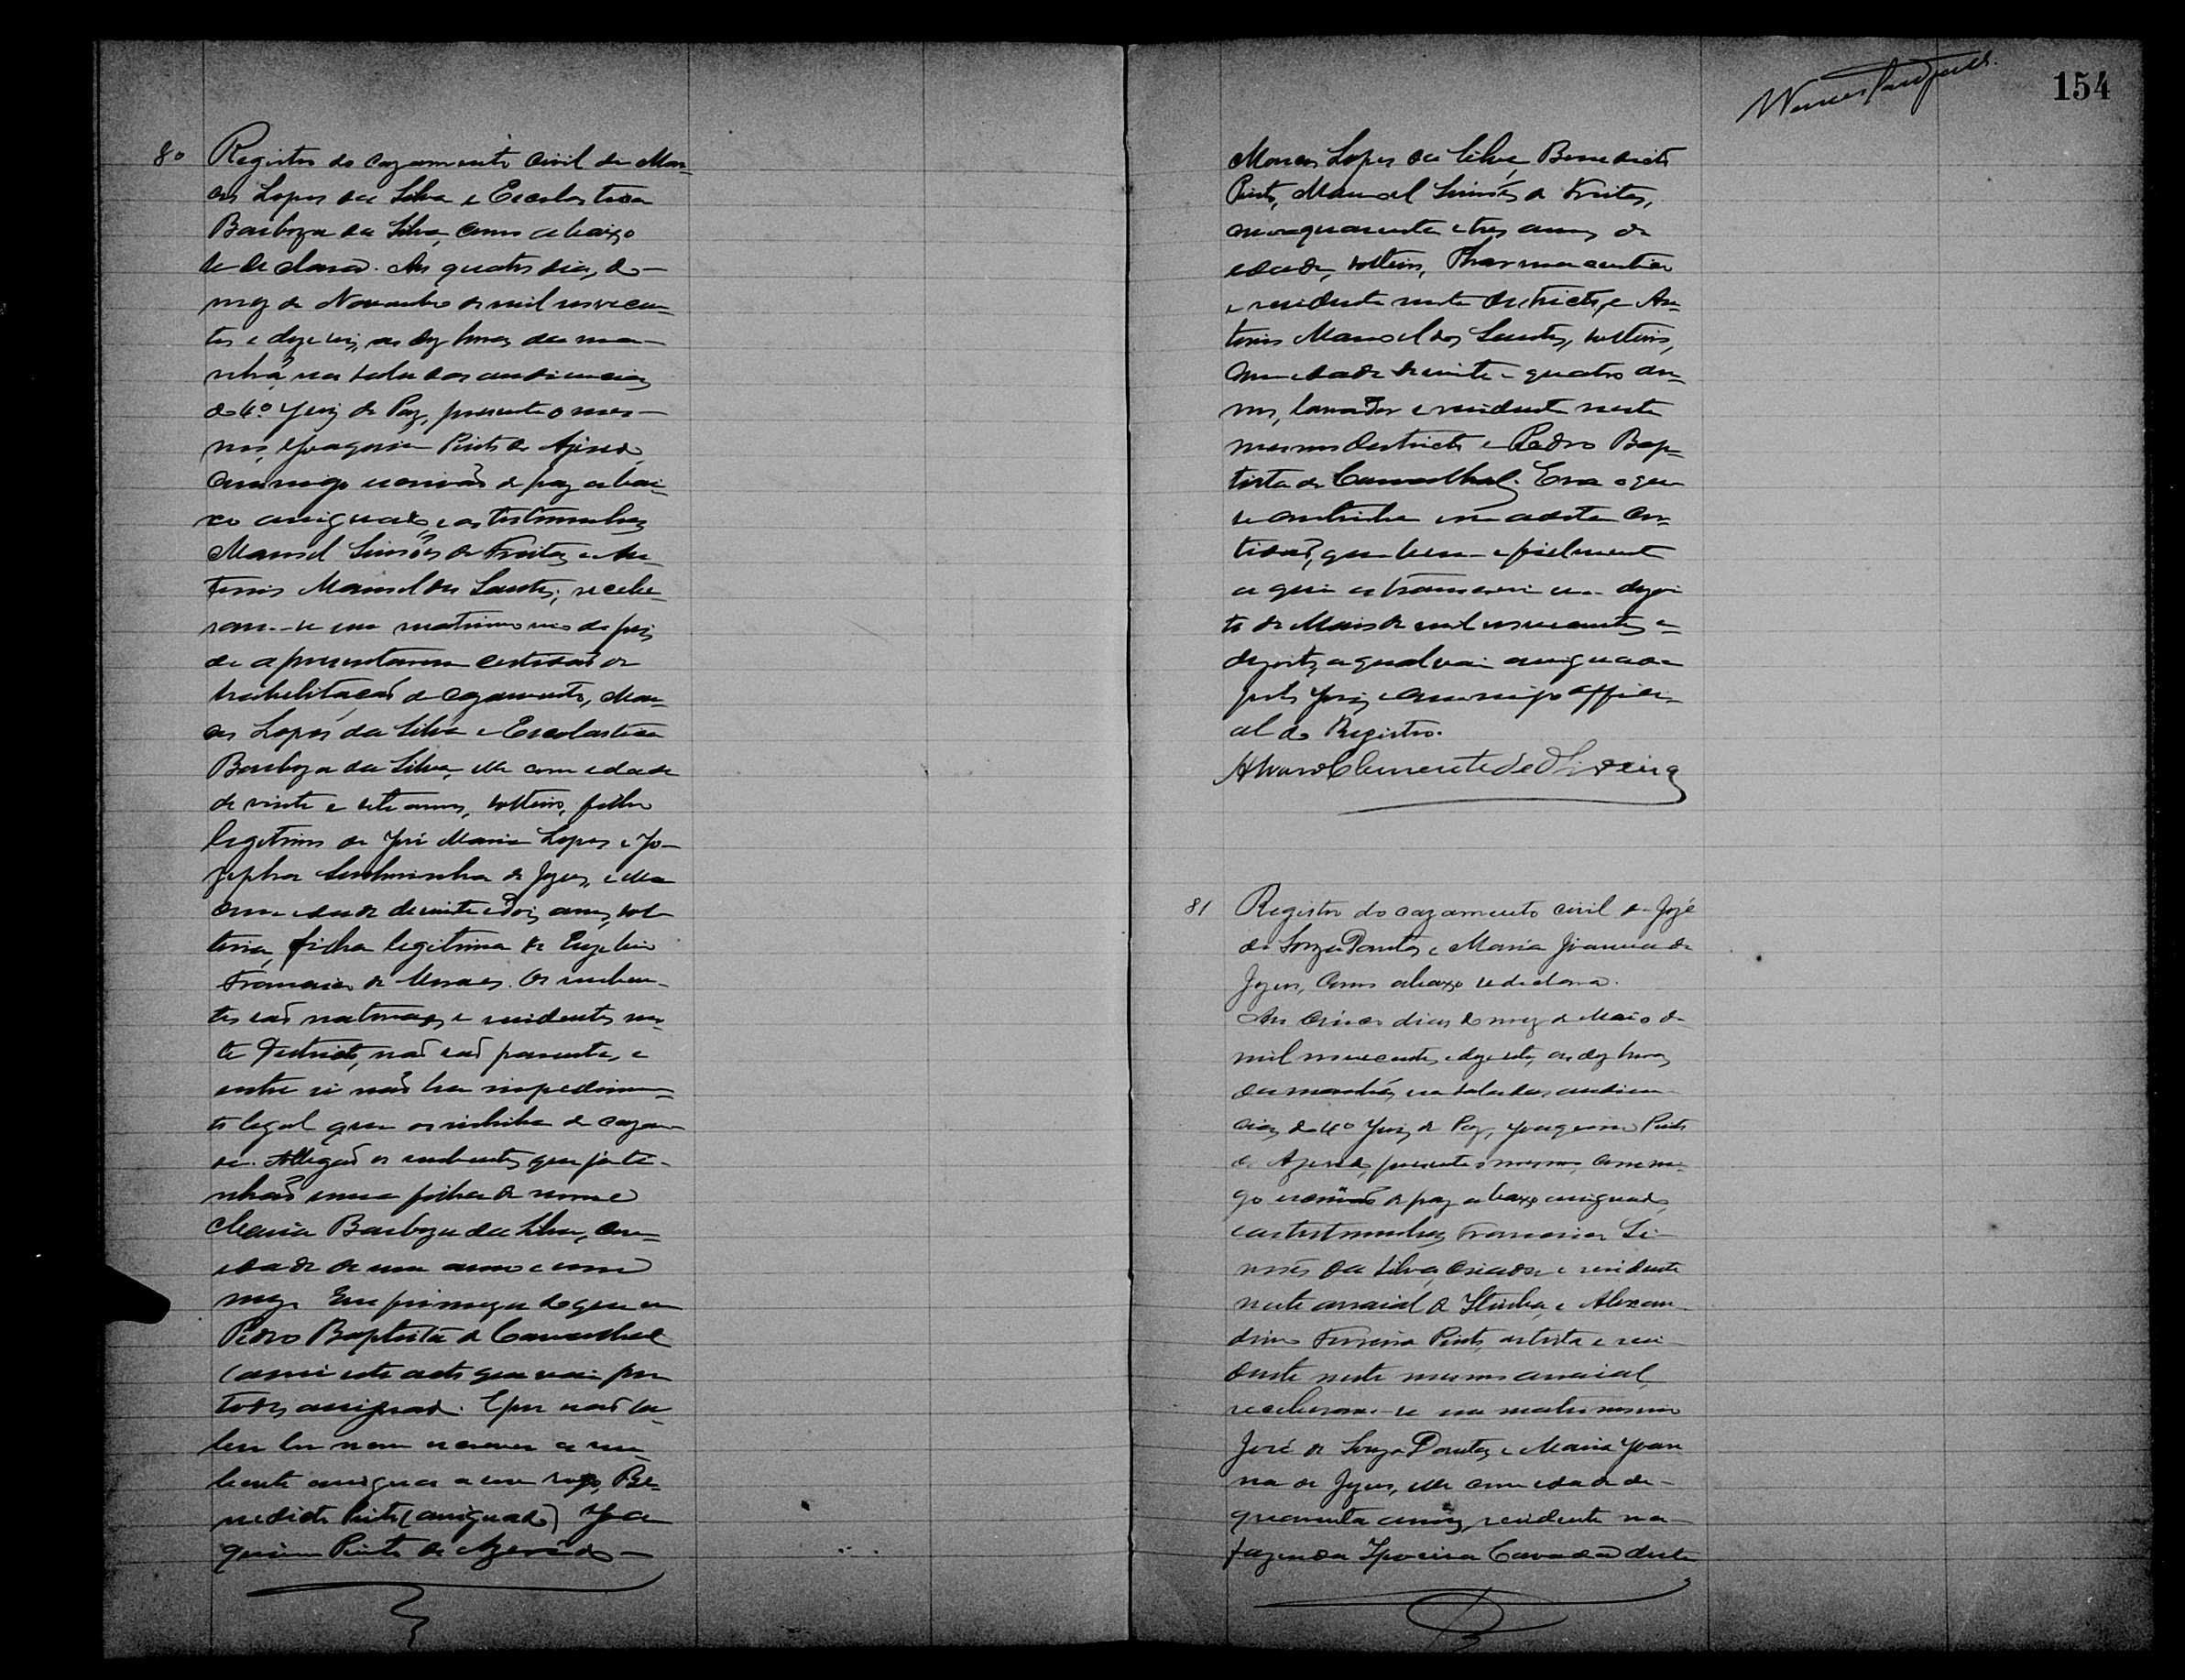 80 Registro do cazamento civil de Mar-
cos Lopes da Silva e Escolastica
Barboza da Silva, como abaixo
se declara. Aos quatro dias, do
mez de Novembro de mil novecen-
tos e dezeseis, as dez horas da ma-
nhã, na sala das audiencias
do 4º Juiz de Paz, presente o mes-
mo, Joaquim Pinto de Azevedo,
commigo escrivão de paz abai-
xo assignado, e as testemunhas
Manoel Simões de Freitas e An-
tonio Manoel dos Santos, recebe-
ram-se em matrimonio depois
de apresentarem certidão de
habelitação de cazamento, Mar-
cos Lopes da Silva e Escolastica
Barboza da Silva, elle com edade
de vinte e sete annos, solteiro, filho
legitimo de José Maria Lopes e Jo-
zepha Senhorinha de Jezus, e ella
com edade de vinte e dois annos, sol-
teira, filha legitima de Euzebio
Francisco de Moraes. Os nuben-
tes são naturaes e residentes nes-
te Destricto, não são parentes, e
entre si não ha impedimen-
to legal que os inhiba de cazar-
se. Allegão os nubentes que já ti-
nhão uma filha de nome
Maria Barboza da Silva, com
edade de um anno e um
mez. Em firmeza do que eu
Pedro Baptista de Carvalhal
lavrei este acto que vai por
todos assignado. E por não sa-
ber ler nem escrever a nu-
bente assigna a seu rogo, Be-
nedicto Pinto (assignado) Joa-
quim Pinto de Azevedo
Werner
154
Marcos Lopes da Silva, Benedicto
Pinto, Manoel Simões de Freitas,
com quarenta e tres annos de
edade, solteiro, Pharmaceutico
e residente neste Destricto, e An-
tonio Manoel dos Santos, solteiro,
com edade de vinte e quatro an-
nos, lavrador e residente neste
mesmo Destricto e Pedro Bap-
tista de Carvalhal. Era o que
se continha em a dita cer-
tidão, que bem e fielmente
aqui a transcrevi em dezoi-
to de Maio de mil novecentos e
dezoito, a qual vai assignada
pelo Juiz e commigo offici-
al do Registro.
Alvaro Clemente de Oliveira
81 Registro do cazamento civil de Jozé
de Souza Dantas e Maria Joanna de
Jezus, como abaixo se declara.
Aos cinco dias do mez de Maio de
mil novecentos e dezesete, as dez horas
da manhã, na sala das audien-
cias do 4º Juiz de Paz, Joaquim Pinto
de Azevedo, presente o mesmo, commi-
go escrivão de paz abaixo assignado,
e as testemunhas Francisco Si-
mões da Silva, criador e residente
neste arraial de Itiuba, e Alexan-
drino Ferreira Pinto, artista e resi-
dente neste mesmo arraial,
receberam-se em matrimonio
José de Souza Dantas e Maria Joan-
na de Jezus, elle com edade de
quarenta annos, residente na
fazenda Ipoeira Cavada deste